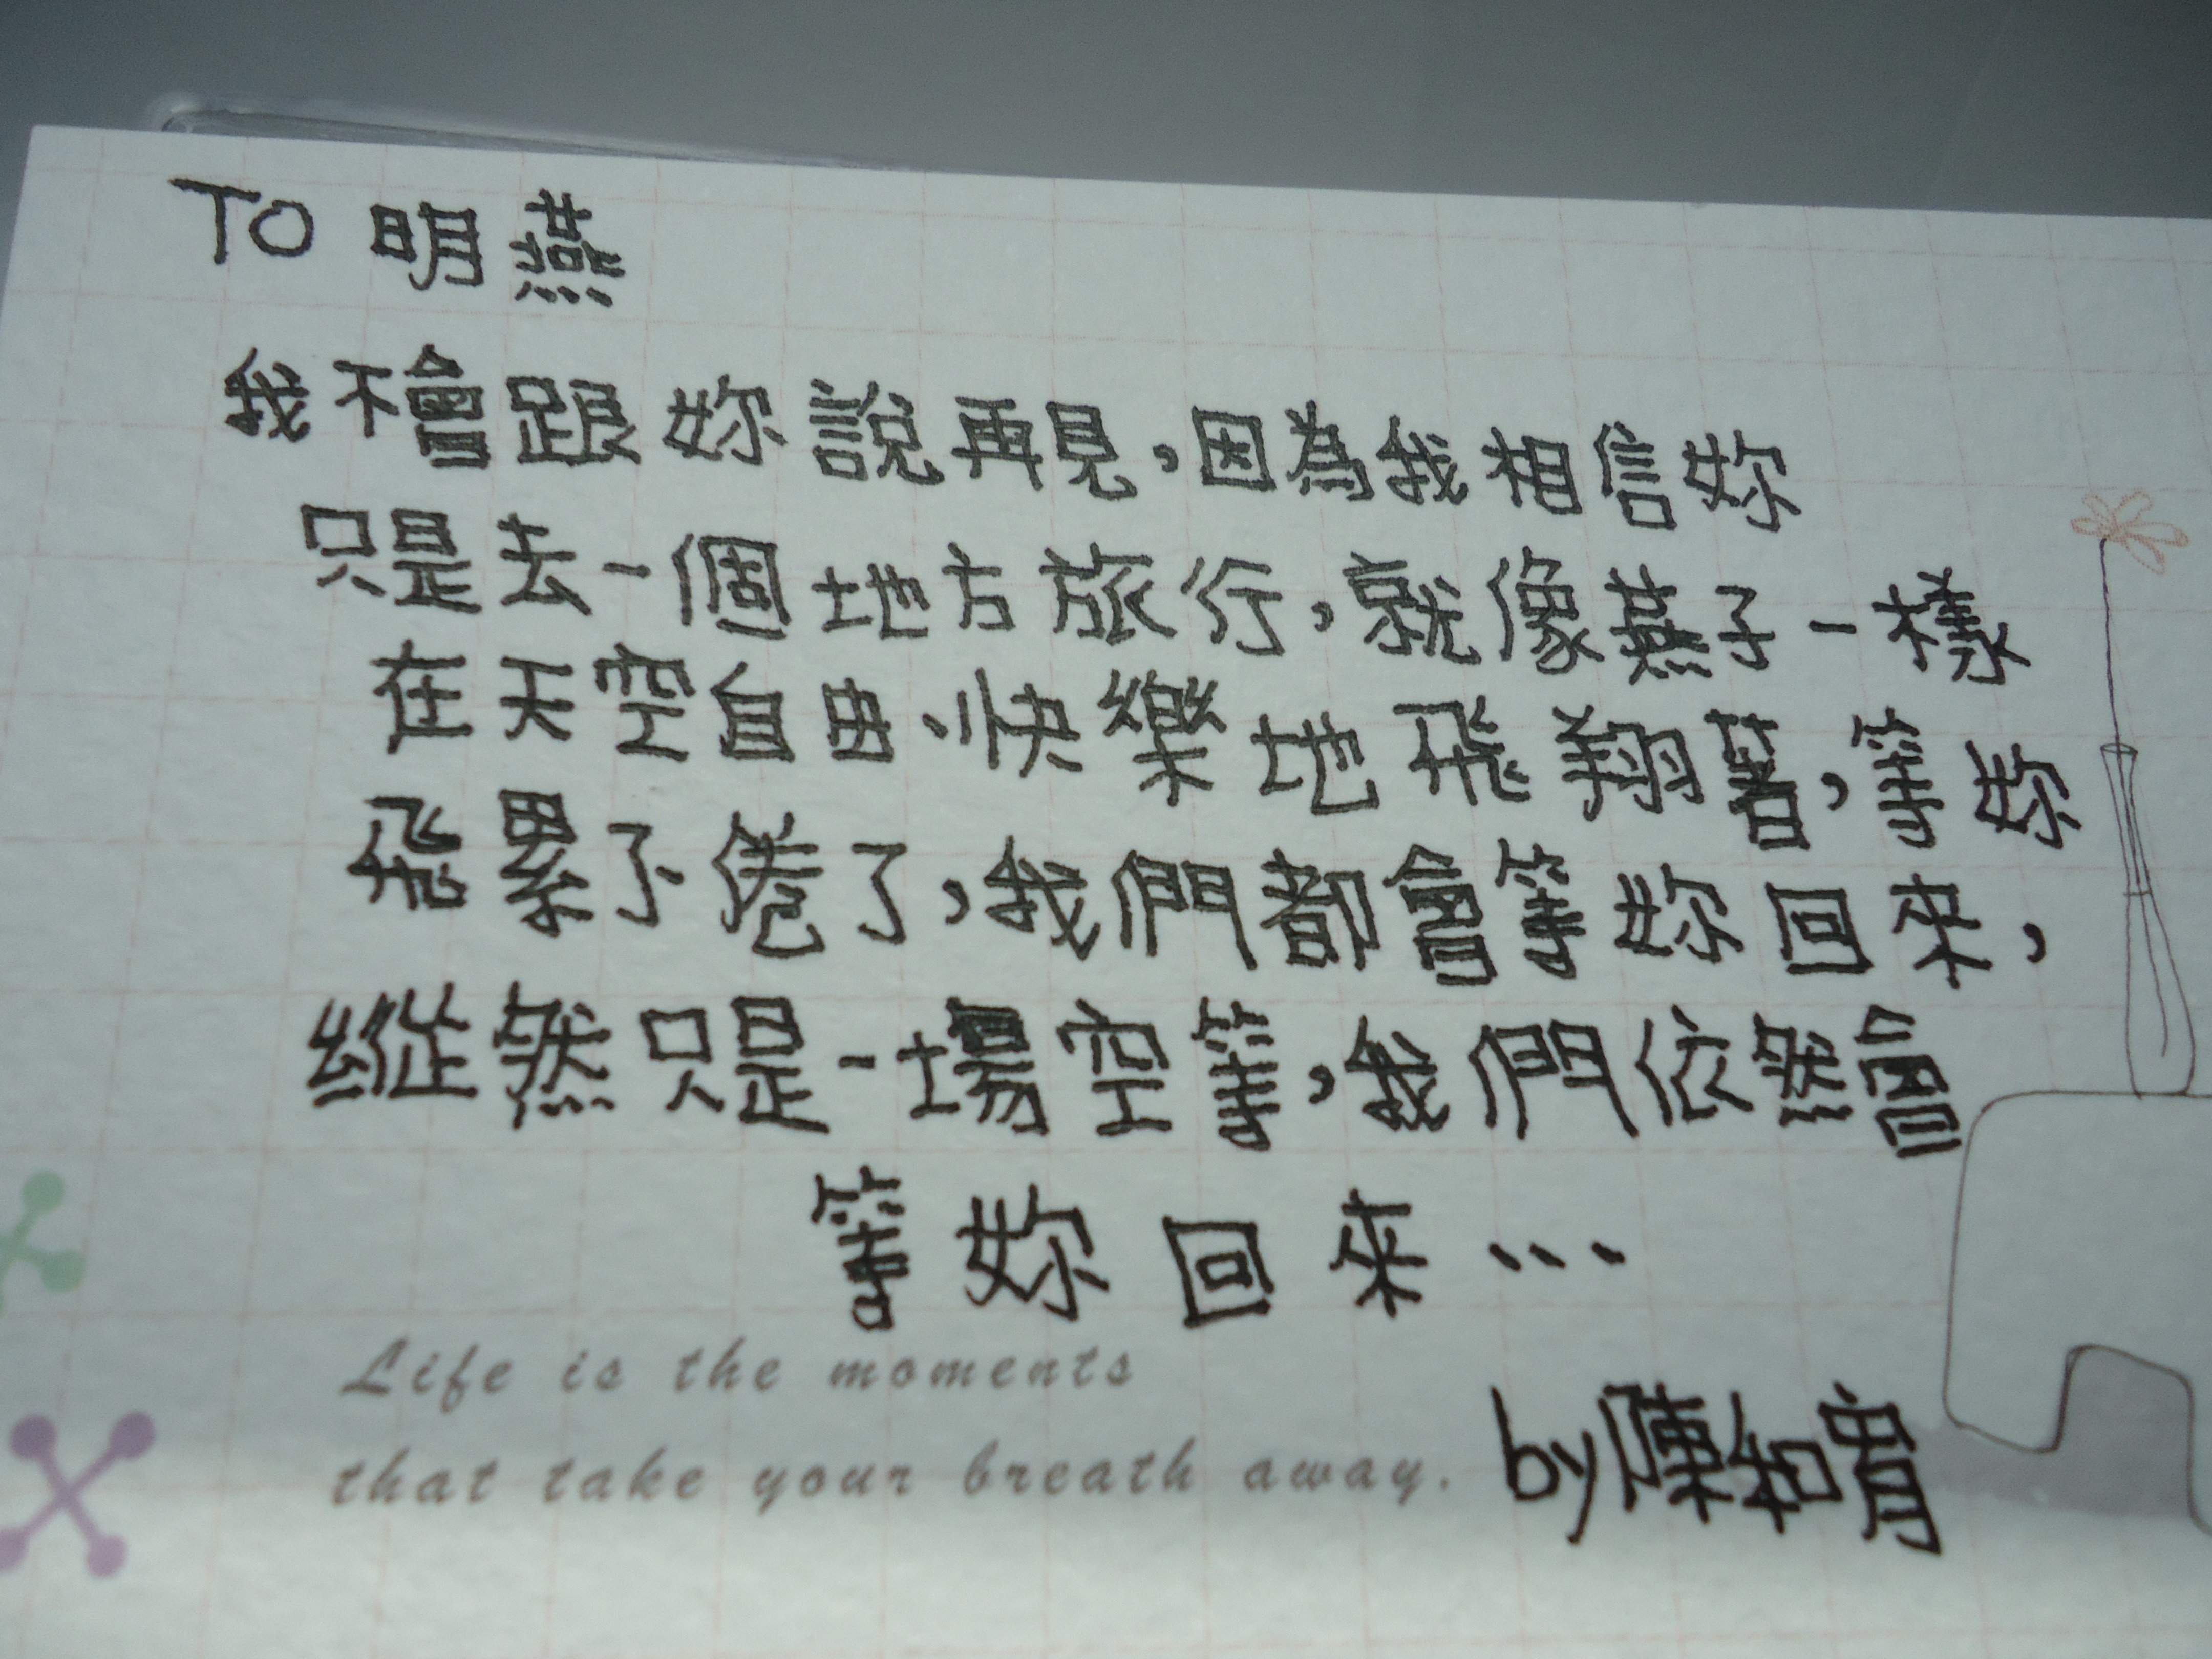 TO 明燕
我不會跟妳說再見,因為我相信妳
只是去一個地方旅行,就像燕子一樣
在天空自由、快樂地飛翔著,等妳
飛累了、倦了,我們都會等妳回來,
縱然只是一場空等,我們依然會
等妳回來…
Life is the moments
that take your breath away.
by陳和宥